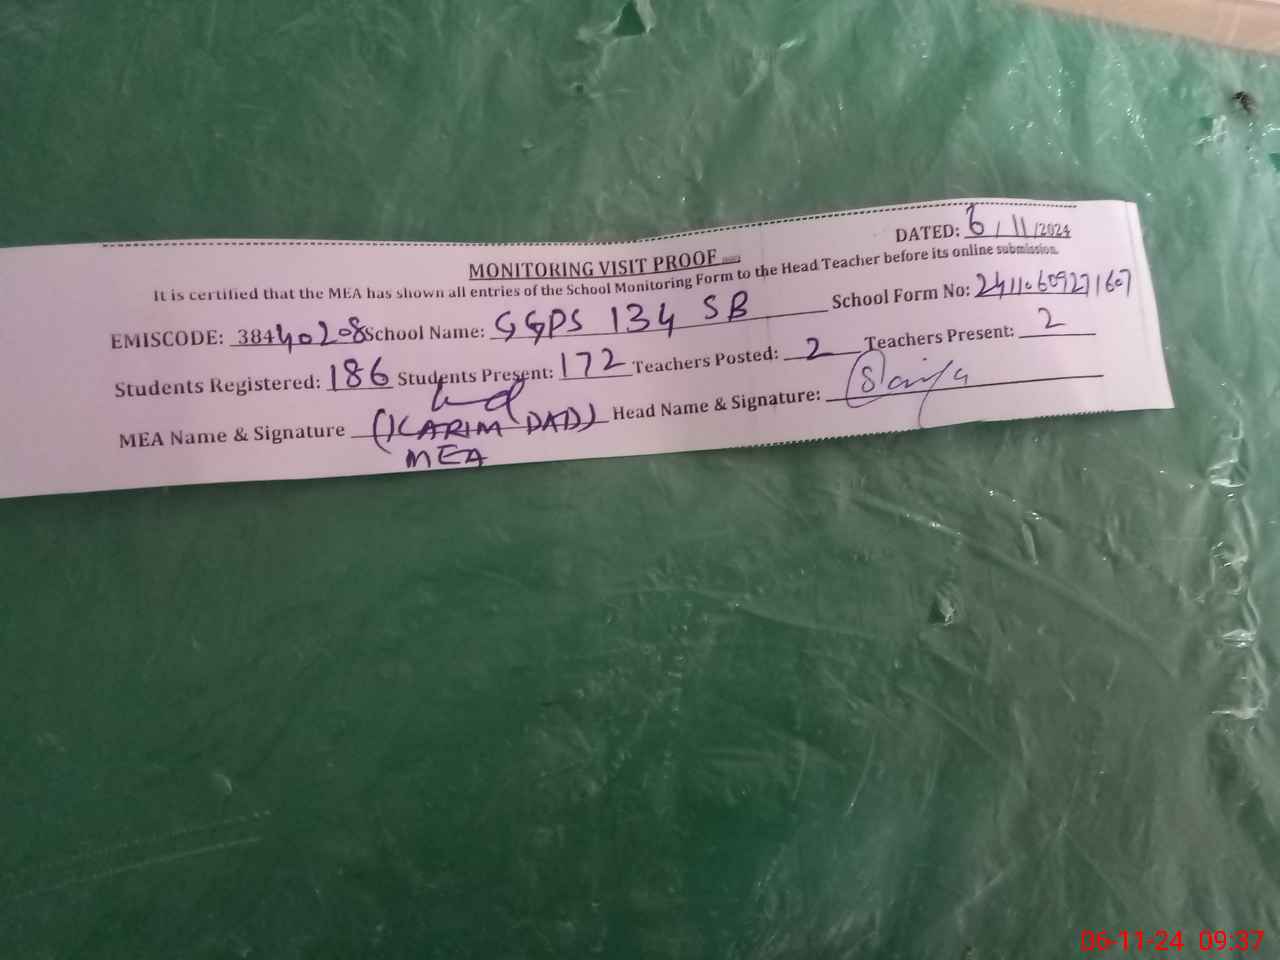 DATED: 6/11/2024
MONITORING VISIT PROOF
It is certified that the MEA has shown all entries of the School Monitoring Form to the Head Teacher before its online submission.
EMISCODE: 38440208 School Name: GGPS 134 SB School Form No: 24110609271607
Students Registered: 186 Students Present: 172 Teachers Posted: 2 Teachers Present: 2
MEA Name & Signature (KARIM DAD) Head Name & Signature:
MEA
06-11-24 09:37